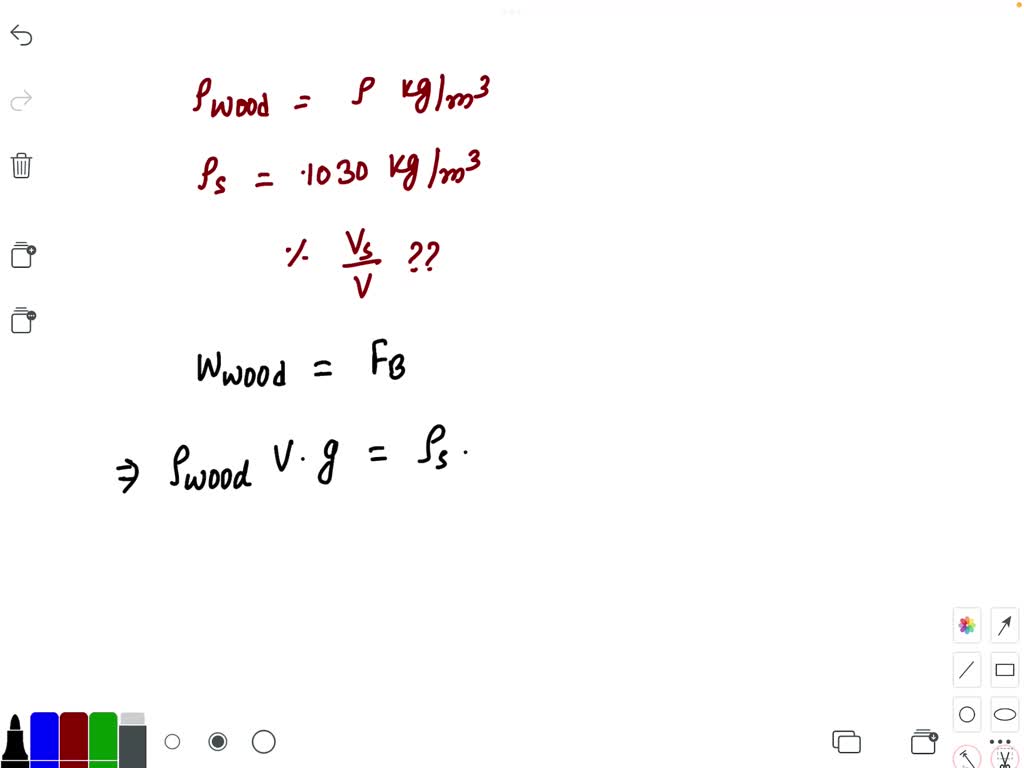 ρwood = ρ kg/m³
ρs = 1030 kg/m³
% Vs/V ??
Wwood = FB
⇒ ρwood V·g = ρs ·